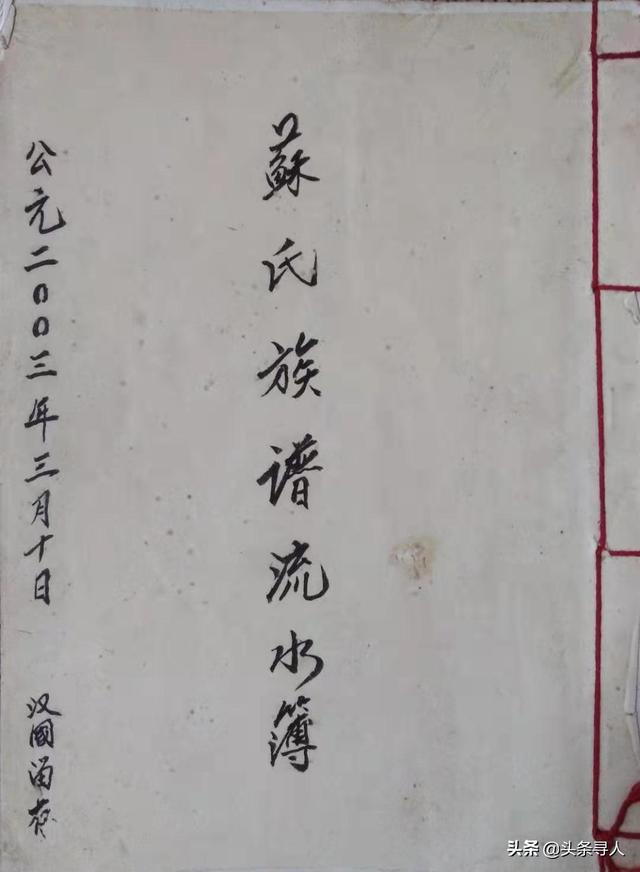 蘇氏族谱流水簿
公元二00三年三月十日
汉國留存
头条 @头条寻人